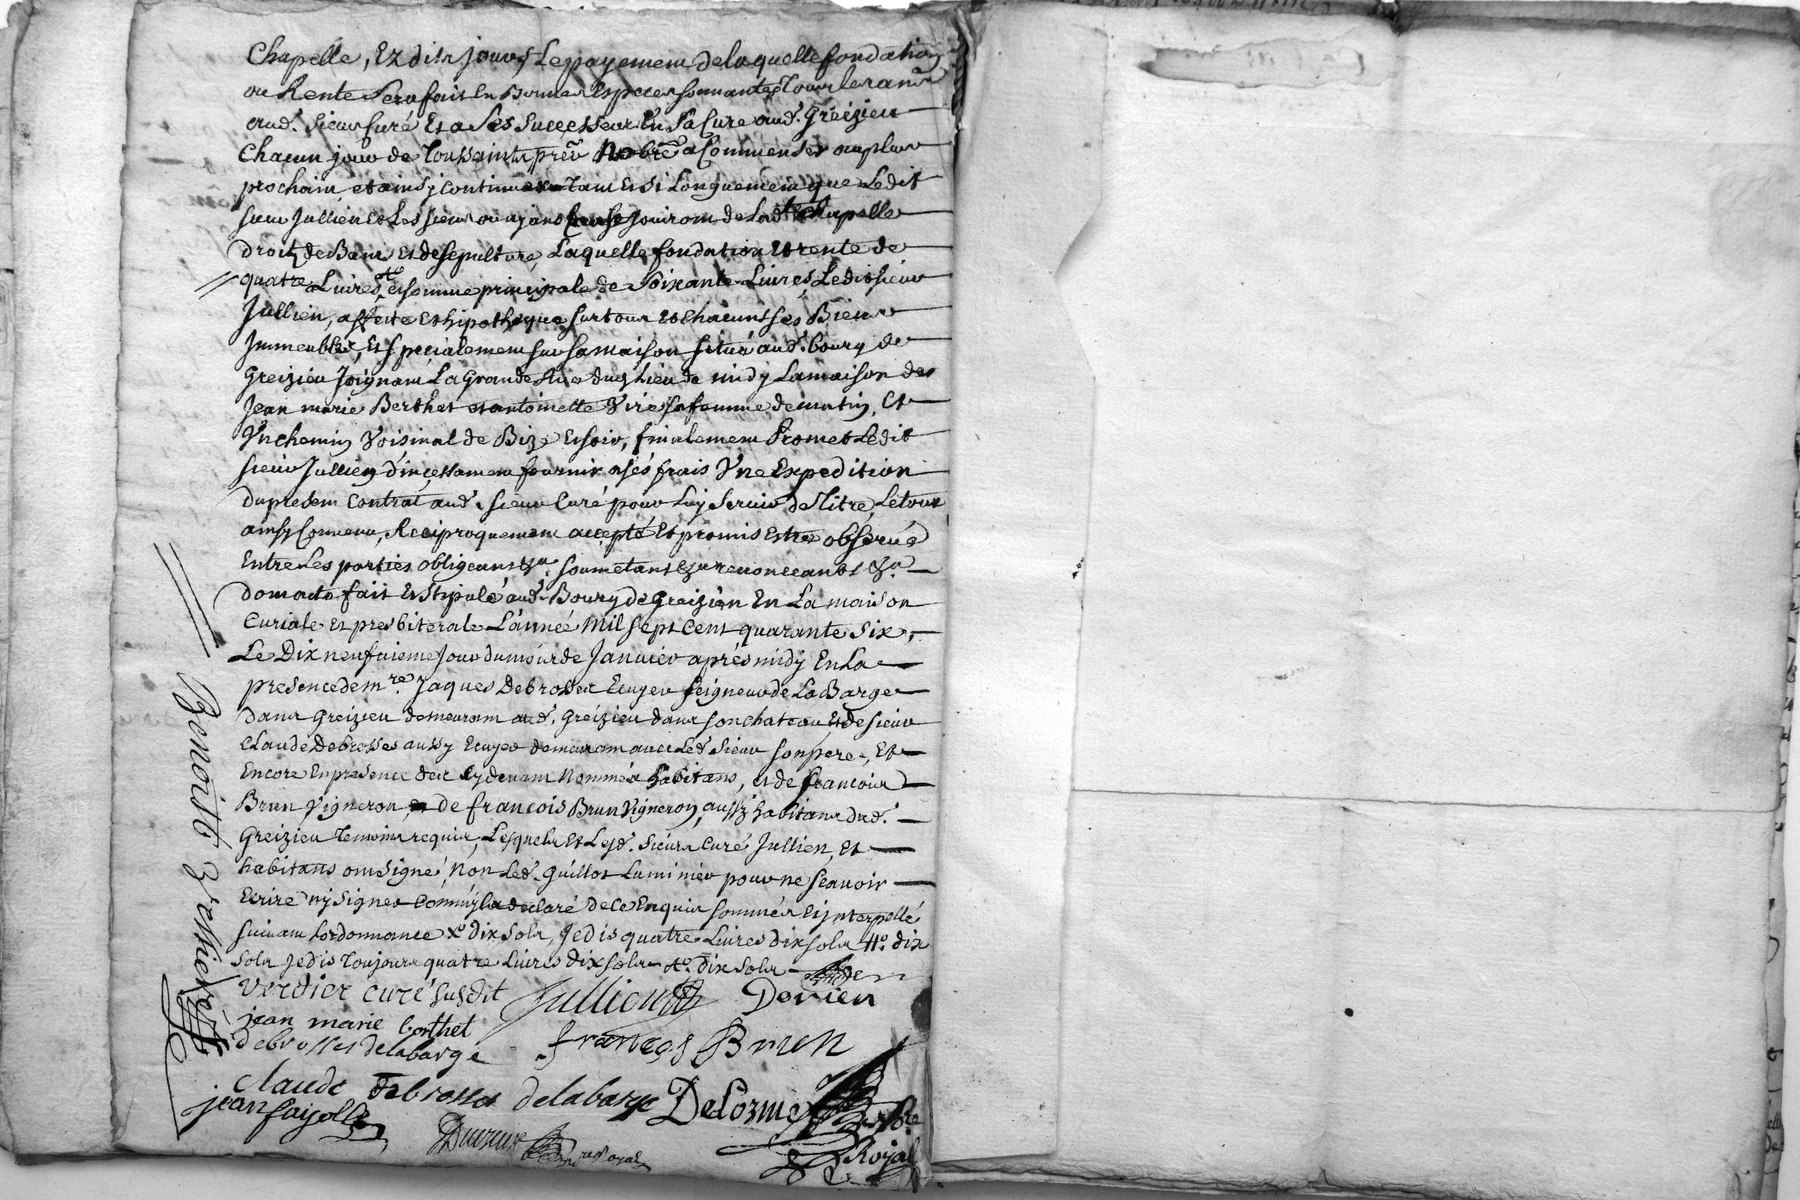 Chapelle, Et dits jours, Le payement de laquelle fondation
ou Rente sera fait En Bonnes Especes sonnantes Tous les ans
aud. sieur Curé Et a ses successeurs En sa Cure aud. Greizieu
Chacun jour de Toussaints pre.r Nobre a Commencer au plus
prochain, et ainsy continuer Tant Et si Longuement que Ledit
sieur Jullien Et Les siens ou ayans Cause Jouiront de Lad.te Chapelle
Droit de Banc Et de sepulture, Laquelle fondation Et rente de
quatre Livres et somme principale de Soixante Livres Ledit sieur
Jullien, affecte Et hipotheque sur tous Et Chacuns ses Biens
Immeubles, Et specialement sur sa maison située aud. bourg de
Greizieu Joignant La Grande Rue du lieu de midy La maison des
Jean marie Berthet et antoinette Viré sa femme de matin, Et
Un chemin Voisinal de Bize Et soir, finalement Promet Ledit
sieur Jullien d'incessament fournir a ses frais Une Expedition
du present Contrat aud. sieur Curé pour Luy Servir de Titre, Le tout
ainsy Convenu, Reciproquement accepté Et promis Estre observé
Entre Les parties obligeants &a. soumetants &a renonceants &a.
Dont acte fait Et stipulé aud. Bourg de Greizieu En La maison
Curiale Et presbiterale L'année Mil sept Cent quarante Six,
Le Dix neufvieme Jour du mois de Janvier après midy En La
presence de m.re Jaques Debrosses Ecuyer seigneur de La Barge
dans Greizieu demeurant aud. Greizieu dans son chateau, Et de sieur
Claude Debrosses aussy Ecuyer demeurant avec Led. sieur son pere, Et
Encore En presence des cy devant Nommés habitans, et de francois
Brun Vigneron, de francois Brun Vigneron, aussy habitans dud.
Greizieu Temoins requis, Lesquels Et Lesd. sieurs Curé Jullien, Et
habitans ont signé, Non Led. Guillot Luminier pour ne scavoir
Ecrire ny signer Comm'il a declaré de ce Enquis sommés Et interpellé
suivant L'ordonnance dix sols, Je dis quatre Livres dix sols dix
sols Je dis Toujours quatre Livres dix sols dix sols
Verdier curé susdit Jullien Dorien
jean marie berthet
debrosses delabarge françois Brun
Claude debrosses delabarge Delorme
jean fayolle
Royal
Benoist